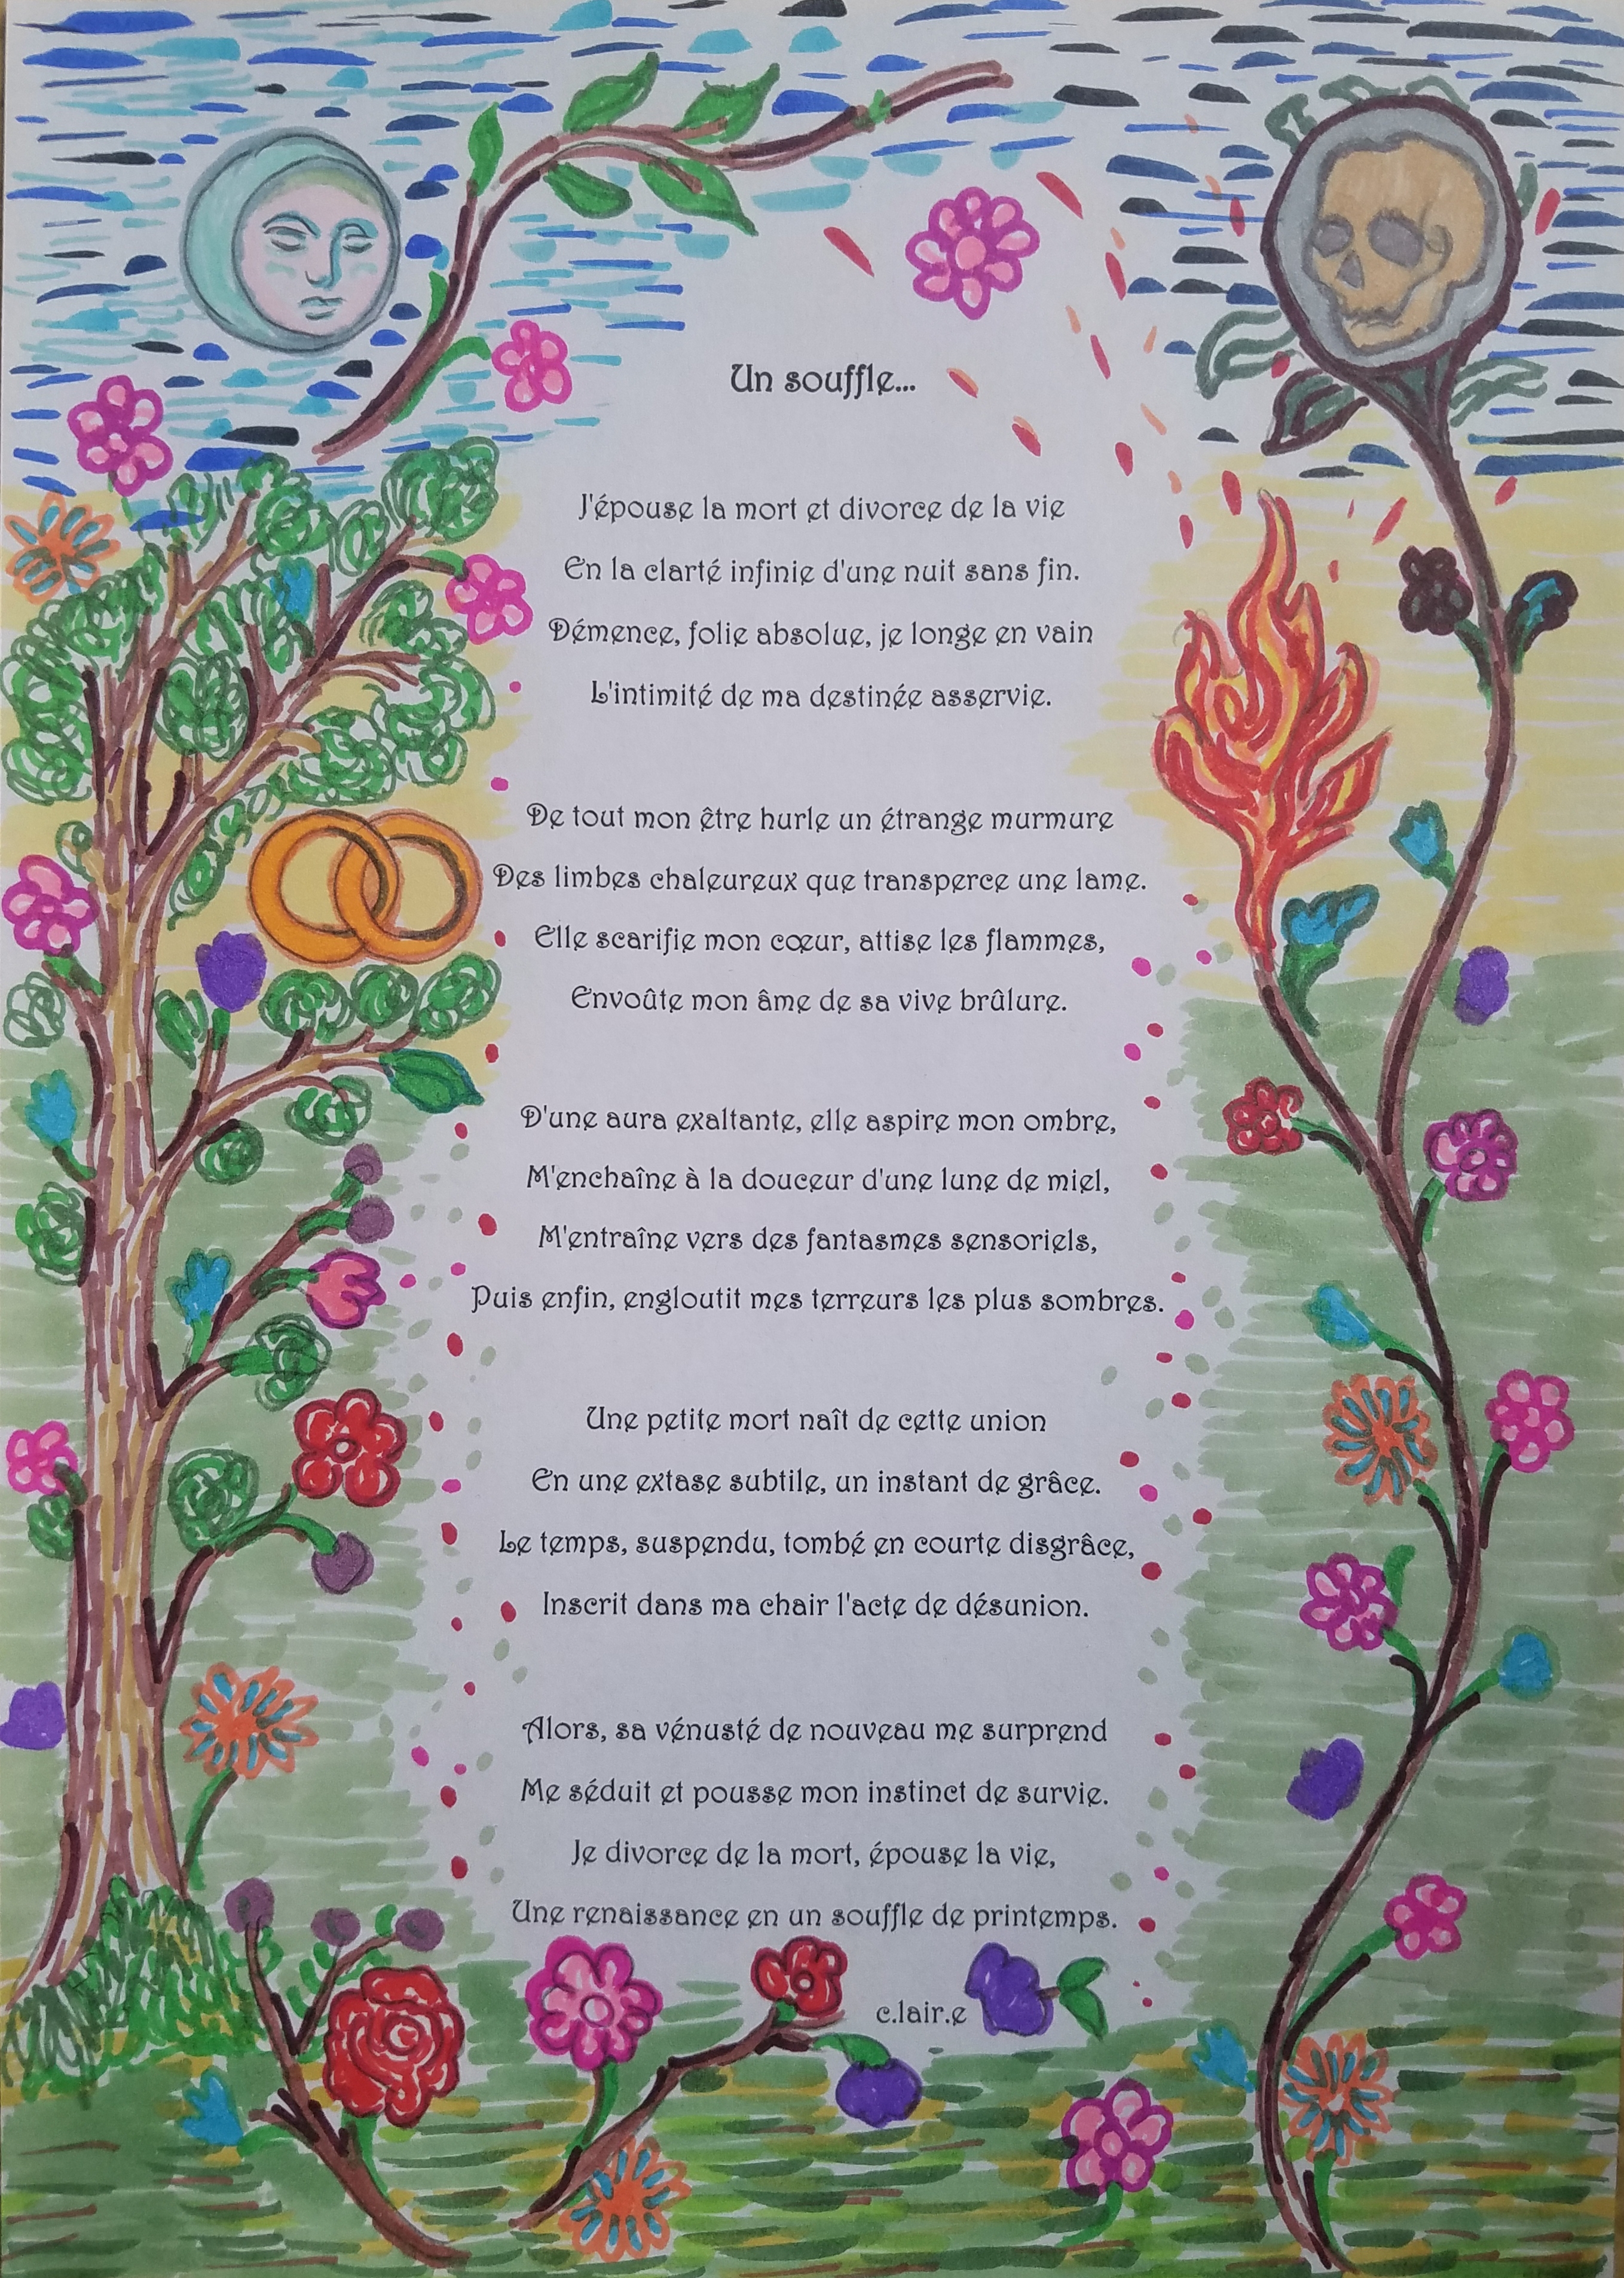 Un souffle...
J'épouse la mort et divorce de la vie
En la clarté infinie d'une nuit sans fin.
Démence, folie absolue, je longe en vain
L'intimité de ma destinée asservie.
De tout mon être hurle un étrange murmure
Des limbes chaleureux que transperce une lame.
Elle scarifie mon cœur, attise les flammes,
Envoûte mon âme de sa vive brûlure.
D'une aura exaltante, elle aspire mon ombre,
M'enchaîne à la douceur d'une lune de miel,
M'entraîne vers des fantasmes sensoriels,
Puis enfin, engloutit mes terreurs les plus sombres.
Une petite mort naît de cette union
En une extase subtile, un instant de grâce.
Le temps, suspendu, tombé en courte disgrâce,
Inscrit dans ma chair l'acte de désunion.
Alors, sa vénusté de nouveau me surprend
Me séduit et pousse mon instinct de survie.
Je divorce de la mort, épouse la vie,
Une renaissance en un souffle de printemps.
c.lair.e